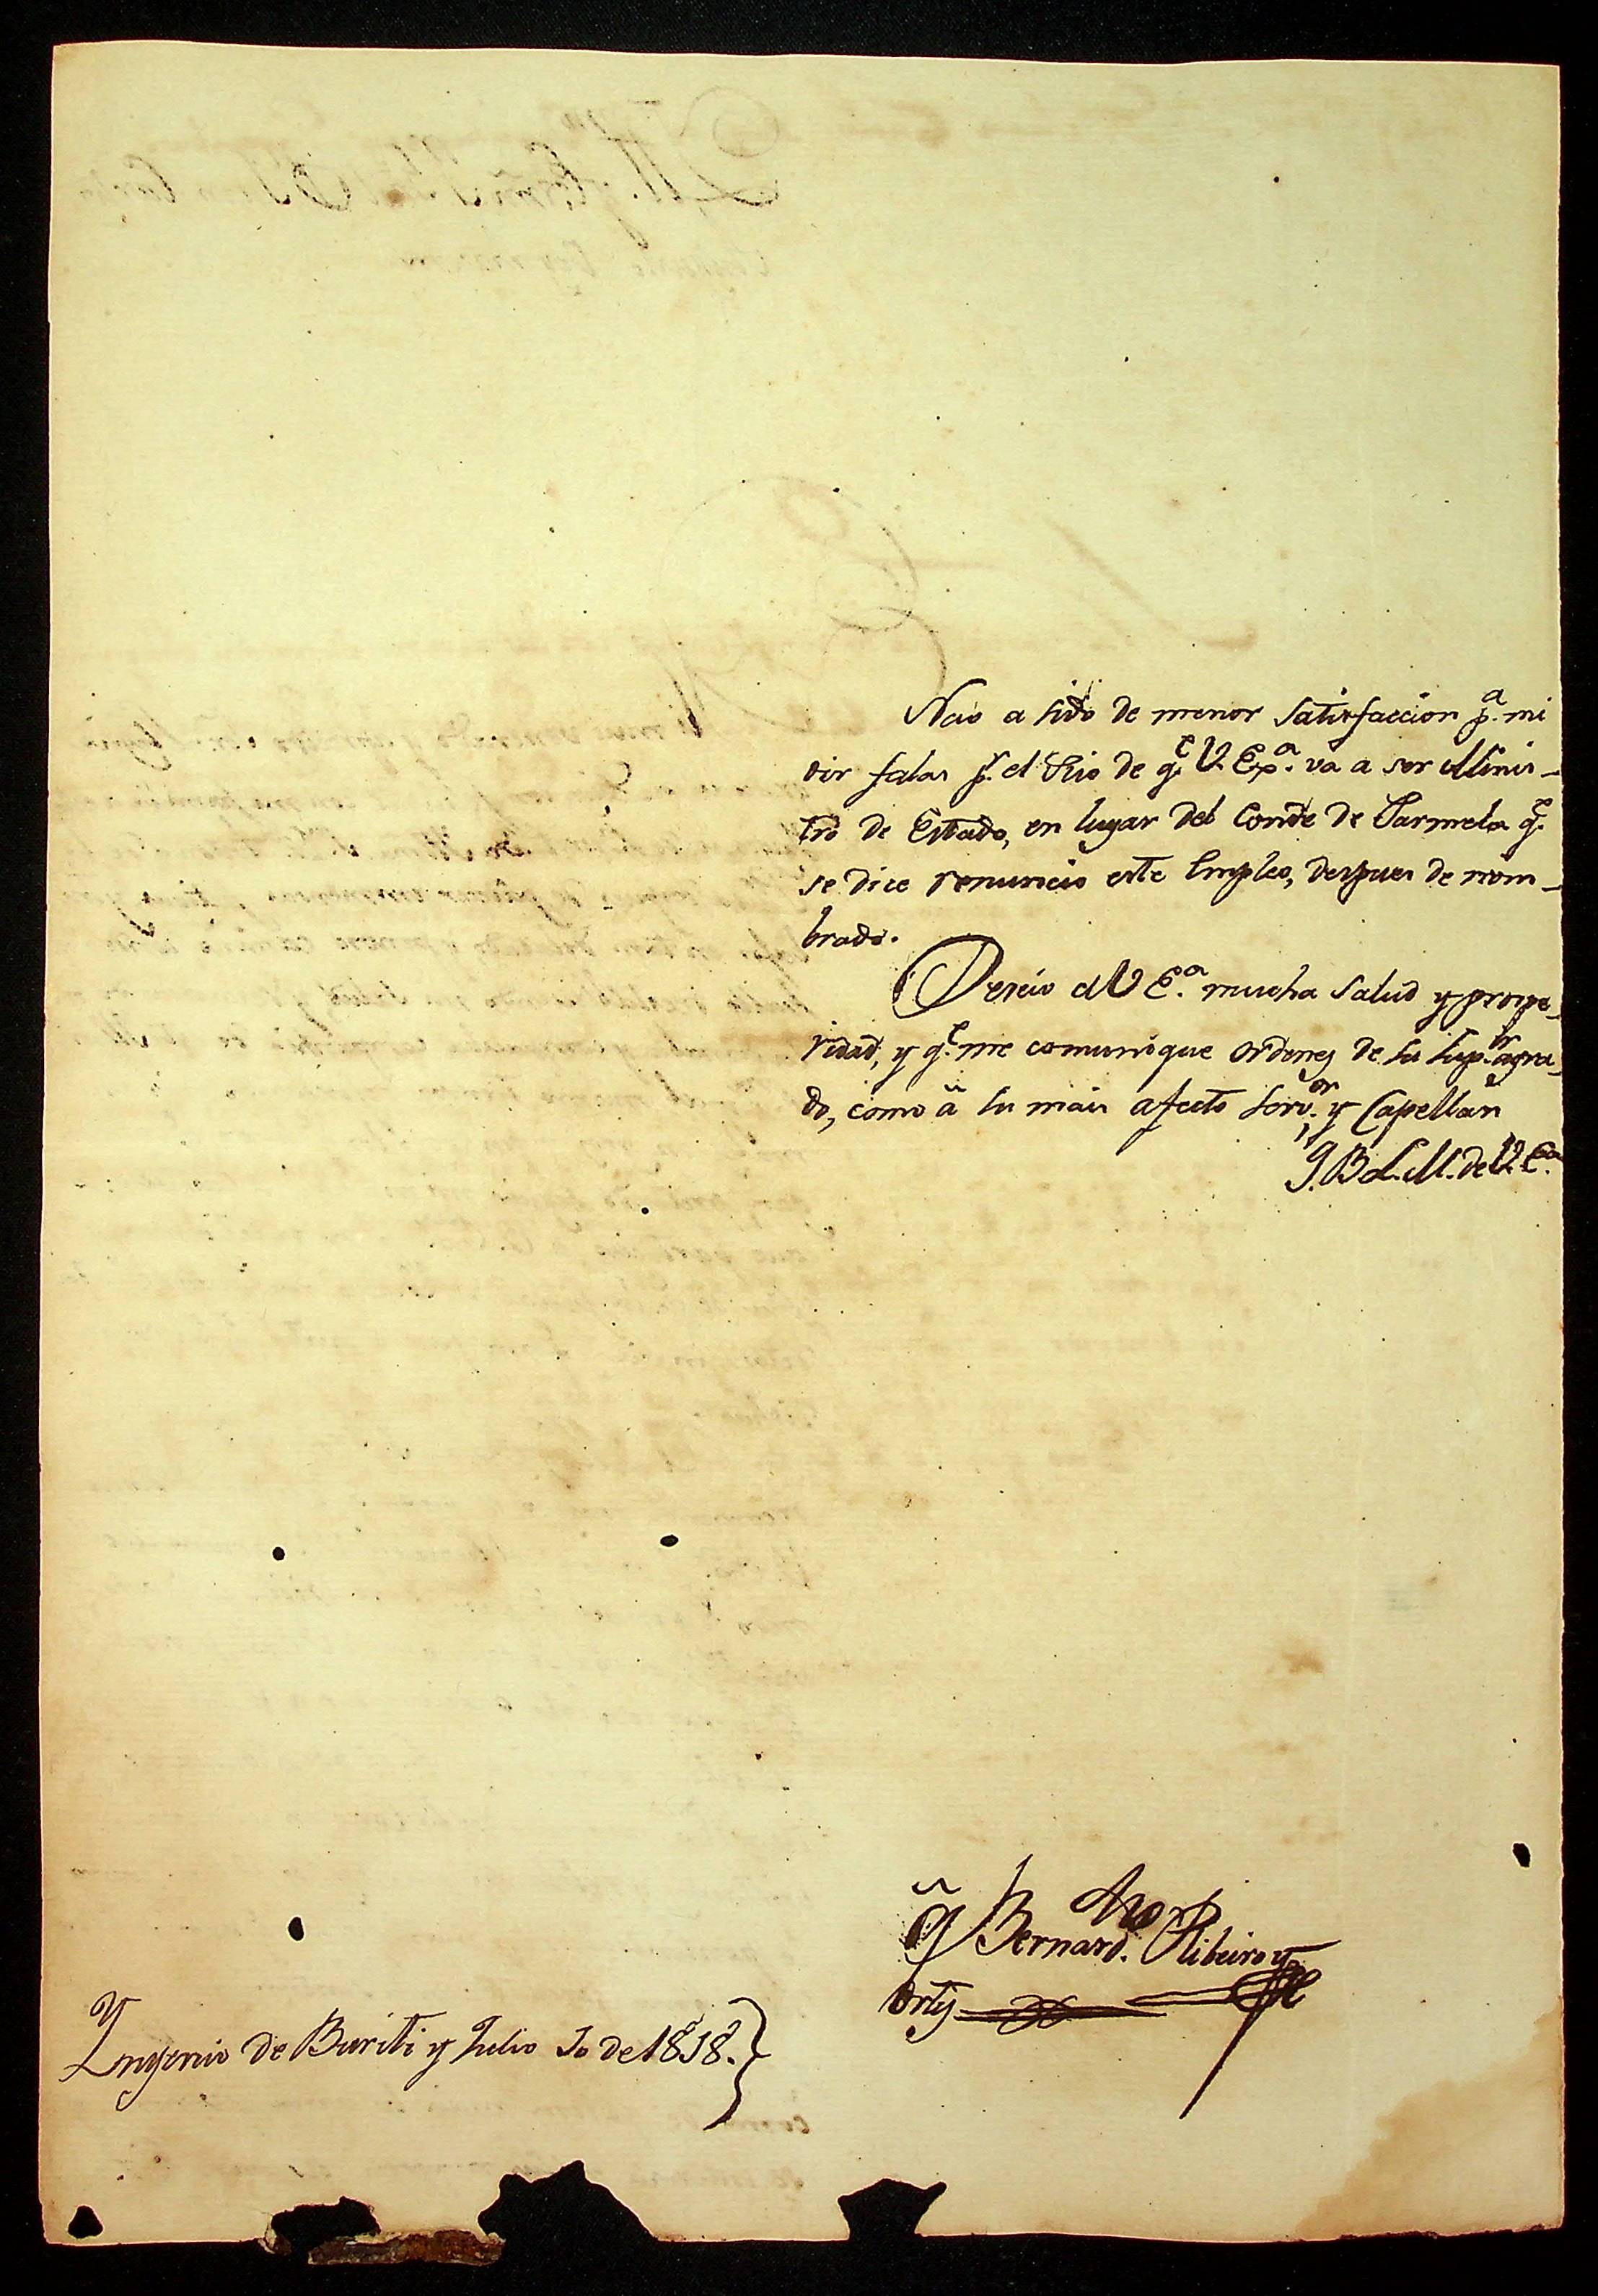 Nao a sido de menor satisfaccion p.ª mi
oir falar p.r el Rio de q.e V. Ex.ª va a ser Minis-
tro de Estado, en lugar del Conde de Parmela q.e
se dice renuncio este Empleo, despues de nom-
brado.
Deseio a V E.ª mucha salud y prospe-
ridad, y q.e me comunique ordenes de su sup.or agra-
do, como ã su mais afecto serv.or y Capellan
Q. B. L. M. de V. E.ª
Bernard.no Ribeiro y
Ortiz
Yngenio de Buriti y Julio 10 de 1818.